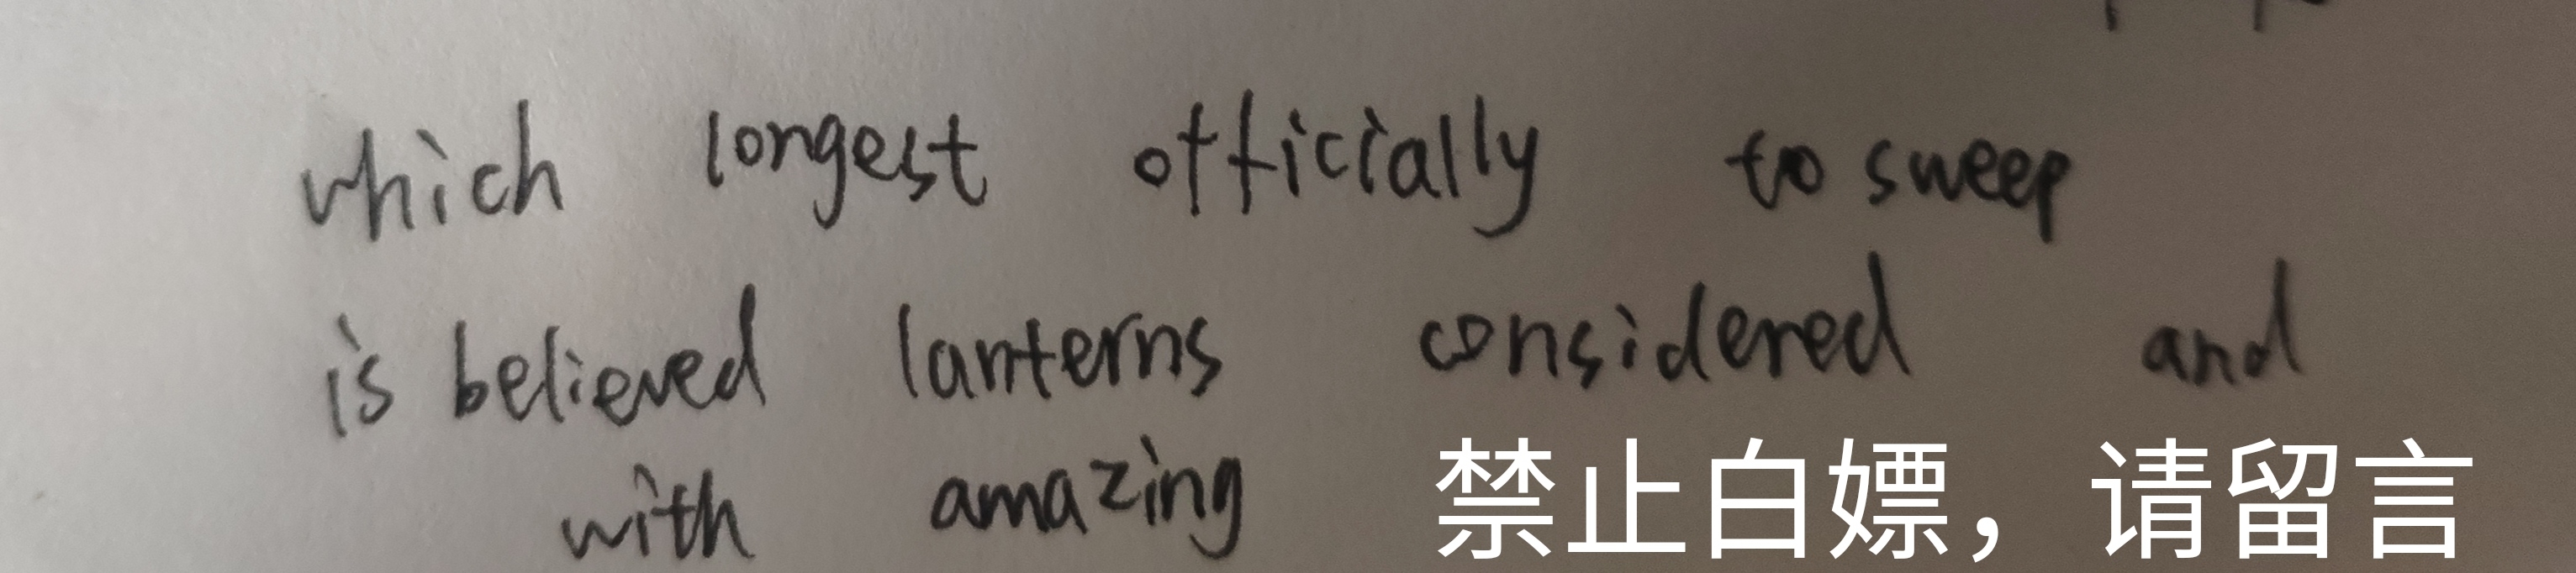 which longest officially to sweep
is believed lanterns considered and
with amazing
禁止白嫖，请留言